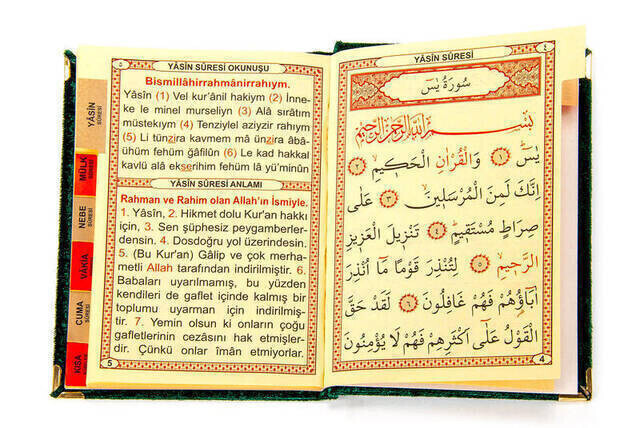 YÂSİN
SÛRESİ
MÜLK
SÛRESİ
NEBE
SÛRESİ
VÂKIA
SÛRESİ
CUMA
SÛRESİ
KISA
YÂSİN SÛRESİ OKUNUŞU
٥
Bismillâhirrahmânirrahıym.
Yâsîn (1) Vel kur'ânil hakiym (2) İnne-
ke le minel murseliyn (3) Alâ sırâtım
müstekıym (4) Tenziylel aziyzir rahıym
(5) Li tünzira kavmem mâ ünzira âbâ-
ühüm fehüm ğâfilûn (6) Le kad hakkal
kavlü alâ ekserihim fehüm lâ yü'minûn
YÂSİN SÛRESİ ANLAMI
Rahman ve Rahim olan Allah'ın İsmiyle.
1. Yâsîn, 2. Hikmet dolu Kur'an hakkı
için, 3. Sen şüphesiz peygamberler-
densin. 4. Dosdoğru yol üzerindesin.
5. (Bu Kur'an) Gâlip ve çok merha-
metli Allah tarafından indirilmiştir. 6.
Babaları uyarılmamış, bu yüzden
kendileri de gaflet içinde kalmış bir
toplumu uyarman için indirilmiş-
tir. 7. Yemin olsun ki onların çoğu
gafletlerinin cezasını hak etmişler-
dir. Çünkü onlar îmân etmiyorlar.
5
YÂSİN SÛRESİ
٤
سُورَةُ يٰسٓ
بِسْمِ اللّٰهِ الرَّحْمٰنِ الرَّحِيمِ
يٰسٓ ﴿١﴾ وَالْقُرْاٰنِ الْحَكِيمِ ﴿٢﴾
اِنَّكَ لَمِنَ الْمُرْسَلِينَ ﴿٣﴾ عَلٰى
صِرَاطٍ مُسْتَقِيمٍ ﴿٤﴾ تَنْزِيلَ الْعَزِيزِ
الرَّحِيمِ ﴿٥﴾ لِتُنْذِرَ قَوْمًا مَٓا اُنْذِرَ
اٰبَٓاؤُهُمْ فَهُمْ غَافِلُونَ ﴿٦﴾ لَقَدْ حَقَّ
الْقَوْلُ عَلٰٓى اَكْثَرِهِمْ فَهُمْ لَا يُؤْمِنُونَ
4